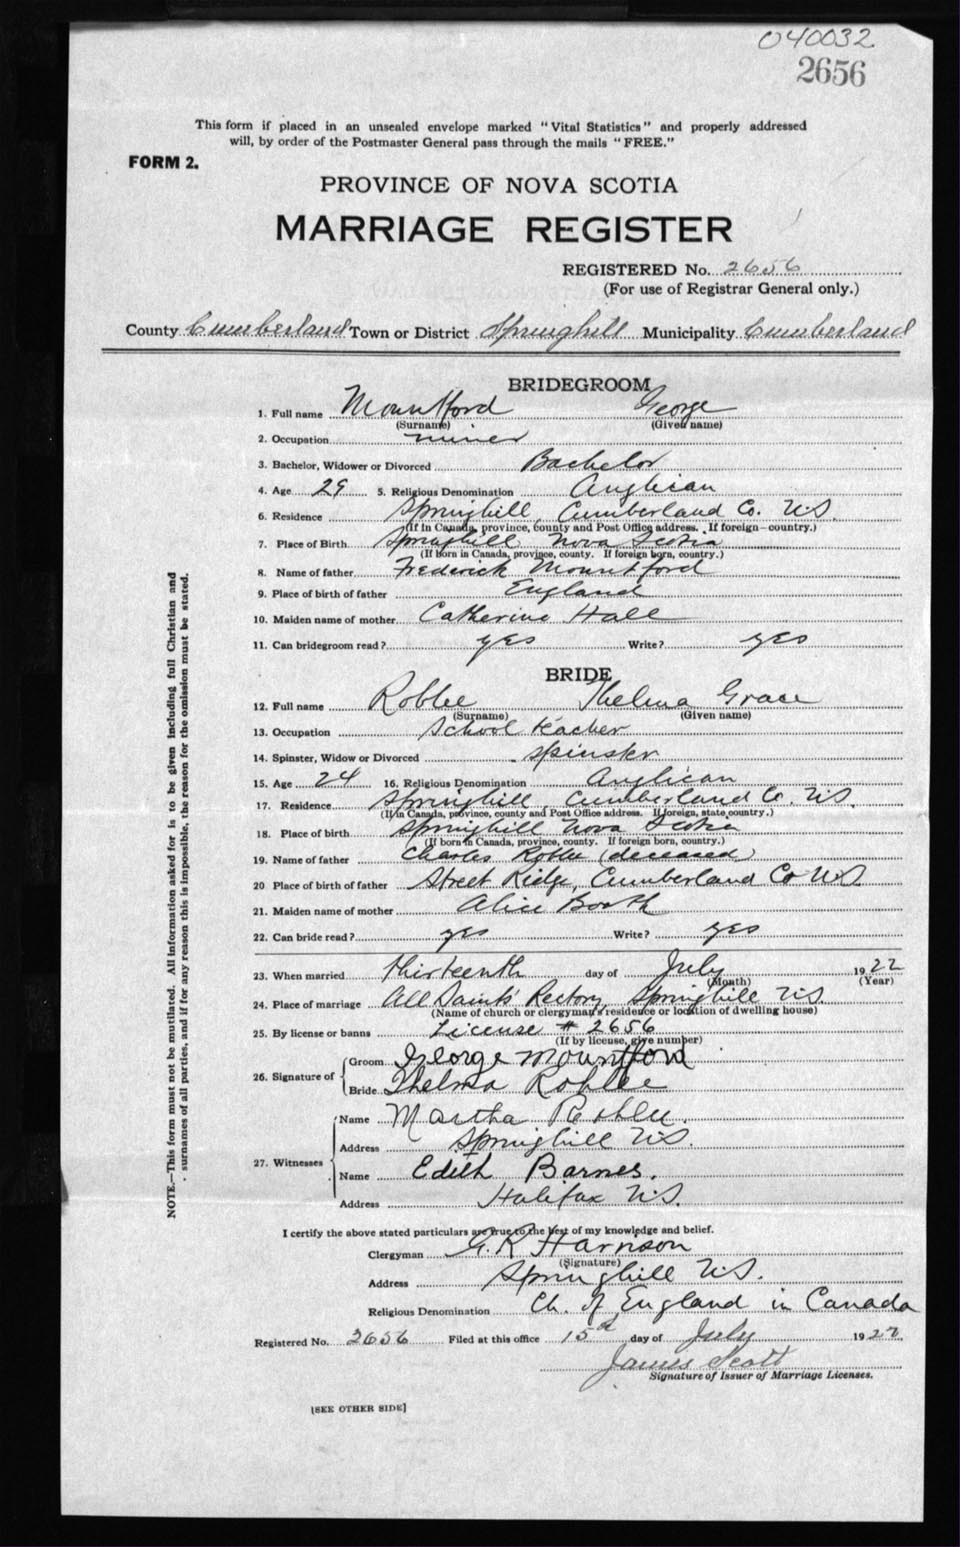 040032
2656
This form if placed in an unsealed envelope marked "Vital Statistics" and properly addressed
will, by order of the Postmaster General pass through the mails "FREE."
FORM 2.
PROVINCE OF NOVA SCOTIA
MARRIAGE REGISTER
REGISTERED No. 2656
(For use of Registrar General only.)
County Cumberland Town or District Springhill Municipality Cumberland
BRIDEGROOM
1. Full name Mountford George
(Surname) (Given name)
2. Occupation miner
3. Bachelor, Widower or Divorced Bachelor
4. Age 29 5. Religious Denomination Anglican
6. Residence Springhill, Cumberland Co. N.S.
(If in Canada, province, county and Post Office address. If foreign—country.)
7. Place of Birth Springhill Nova Scotia
(If born in Canada, province, county. If foreign born, country.)
8. Name of father Frederick Mountford
9. Place of birth of father England
10. Maiden name of mother Catherine Hall
11. Can bridegroom read? yes Write? yes
BRIDE
12. Full name Roblee Thelma Grace
(Surname) (Given name)
13. Occupation School teacher
14. Spinster, Widow or Divorced spinster
15. Age 24 16. Religious Denomination Anglican
17. Residence Springhill, Cumberland Co. N.S.
(If in Canada, province, county and Post Office address. If foreign, state country.)
18. Place of birth Springhill Nova Scotia
(If born in Canada, province, county. If foreign born, country.)
19. Name of father Charles Roblee (deceased)
20 Place of birth of father Street Ridge, Cumberland Co N.S
21. Maiden name of mother Alice Booth
22. Can bride read? yes Write? yes
23. When married thirteenth day of July 1922
(Month) (Year)
24. Place of marriage All Saints' Rectory, Springhill N.S
(Name of church or clergyman's residence or location of dwelling house)
25. By license or banns License # 2656
(If by license, give number)
26. Signature of Groom George Mountford
Bride Thelma Roblee
27. Witnesses Name Martha Roblee
Address Springhill N.S.
Name Edith Barnes.
Address Halifax N.S.
I certify the above stated particulars are true to the best of my knowledge and belief.
Clergyman G.R Harrison
(Signature)
Address Springhill N.S.
Religious Denomination Ch. of England in Canada
Registered No. 2656 Filed at this office 15 day of July 1922
James Scott
Signature of Issuer of Marriage Licenses.
[SEE OTHER SIDE]
NOTE.—This form must not be mutilated. All information asked for is to be given including full Christian and
surnames of all parties, and if for any reason this is impossible, the reason for the omission must be stated.